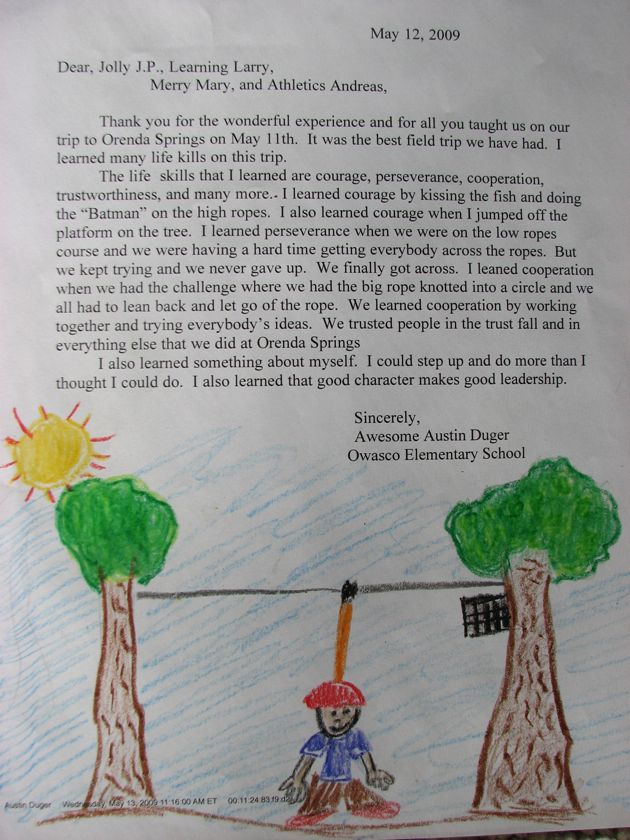 May 12, 2009
Dear, Jolly J.P., Learning Larry,
Merry Mary, and Athletics Andreas,
Thank you for the wonderful experience and for all you taught us on our
trip to Orenda Springs on May 11th. It was the best field trip we have had. I
learned many life kills on this trip.
The life skills that I learned are courage, perseverance, cooperation,
trustworthiness, and many more.. I learned courage by kissing the fish and doing
the “Batman” on the high ropes. I also learned courage when I jumped off the
platform on the tree. I learned perseverance when we were on the low ropes
course and we were having a hard time getting everybody across the ropes. But
we kept trying and we never gave up. We finally got across. I leaned cooperation
when we had the challenge where we had the big rope knotted into a circle and we
all had to lean back and let go of the rope. We learned cooperation by working
together and trying everybody’s ideas. We trusted people in the trust fall and in
everything else that we did at Orenda Springs
I also learned something about myself. I could step up and do more than I
thought I could do. I also learned that good character makes good leadership.
Sincerely,
Awesome Austin Duger
Owasco Elementary School
Austin Duger Wednesday, May 13, 2009 11:16:00 AM ET